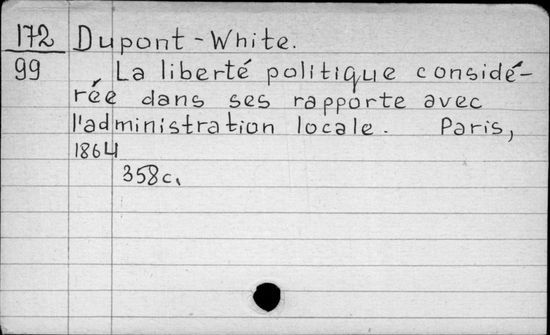 172 Dupont-White.
99 La liberté politique considé-
rée dans ses rapporte avec
l'administration locale. Paris,
1864
358c.